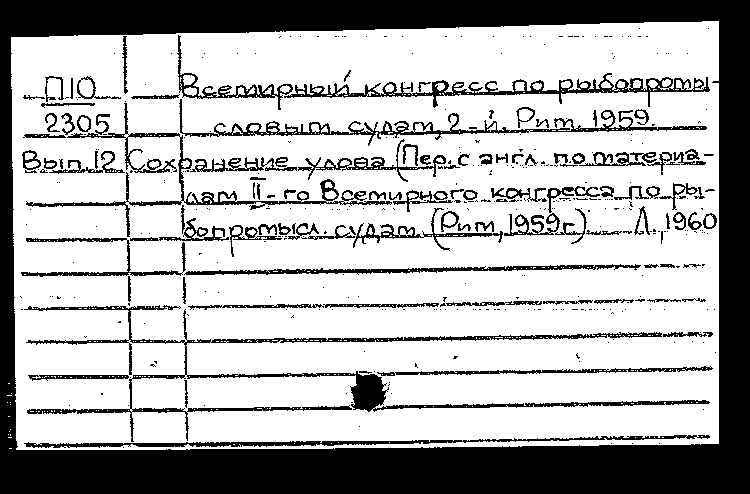 П10 Всемирный конгресс по рыбопромы-
2305 словым судам, 2-й. Рим. 1959.
Вып. 12 Сохранение улова (Пер. с англ. по материа-
лам II-го Всемирного конгресса по ры-
бопромысл. судам (Рим, 1959г.) Л., 1960